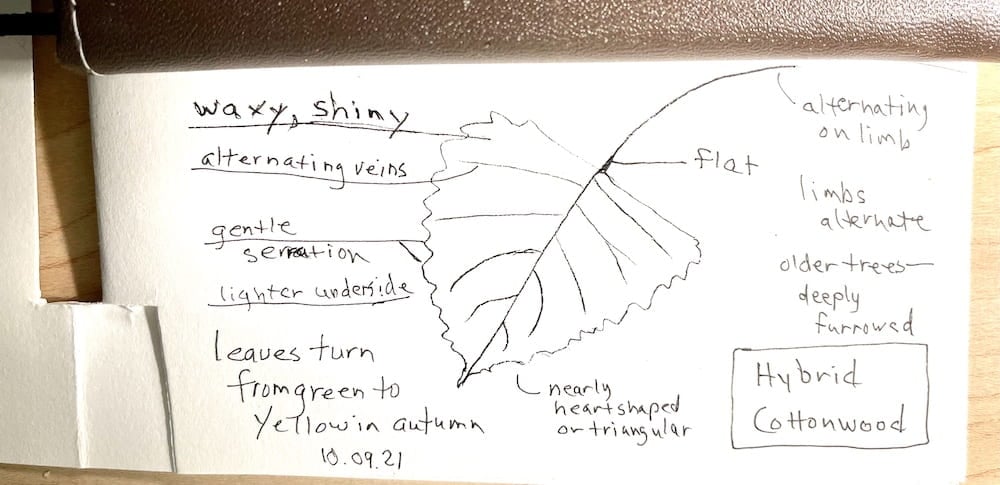 waxy, shiny
alternating veins
gentle
serration
lighter underside
leaves turn
from green to
yellow in autumn
10.09.21
nearly
heart shaped
or triangular
flat
alternating
on limb
limbs
alternate
older trees—
deeply
furrowed
Hybrid
Cottonwood